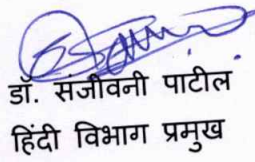 डॉ. संजीवनी पाटील
हिंदी विभाग प्रमुख